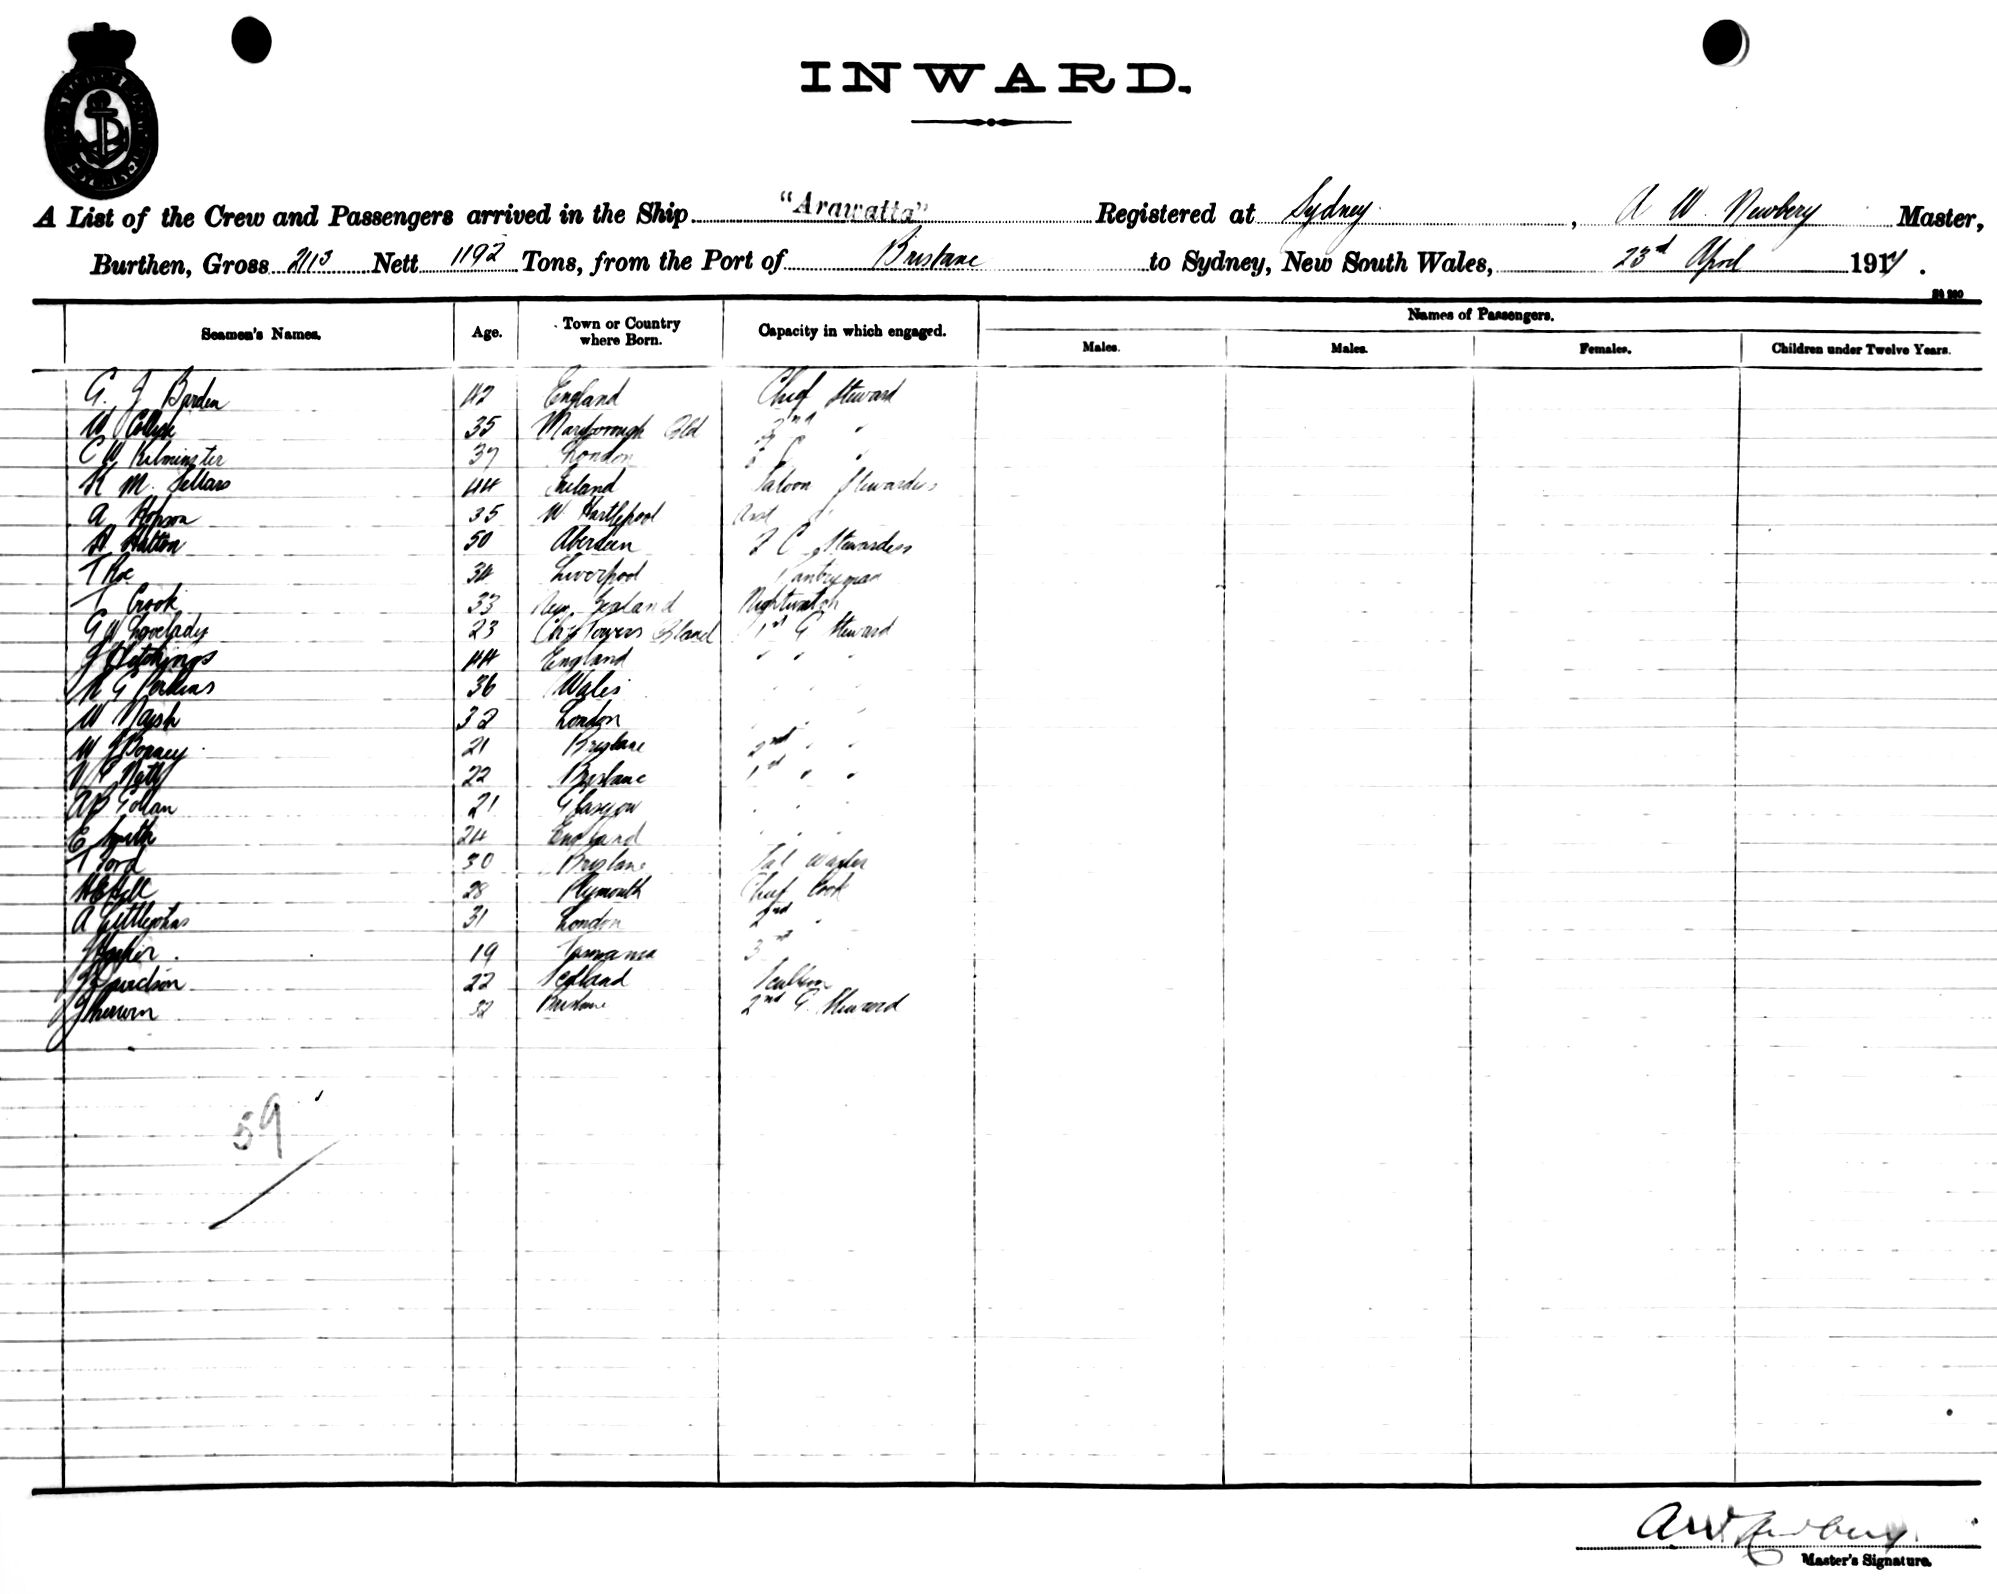 INWARD.
A List of the Crew and Passengers arrived in the Ship "Arawatta" Registered at Sydney, A W. Newbery Master,
Burthen, Gross 2113 Nett 1192 Tons, from the Port of Brisbane to Sydney, New South Wales, 23rd April 191
Seamen's Names. Age. Town or Country where Born. Capacity in which engaged. Names of Passengers.
Males. Males. Females. Children under Twelve Years.
G. J Barden 42 England Chief Steward
W 35 Maryborough Qld 2nd "
C W Kilminster 37 London "
K M. Sellars 44 Ireland Saloon Stewardess
A Hopson 35 W Hartlepool Asst "
H Hatton 50 Aberdeen 2 C Stewardess
T Roe 34 Liverpool Pantryman
T Crook 33 New Zealand Nightwatch
G W Lovelady 23 Chs Towers 1st G Steward
J Hitchings 44 England " " "
G Perkins 36 Wales " " "
W Naish 32 London " " "
W J Bonney 21 Brisbane 2nd " "
22 Brisbane 1st " "
21 Glasgow " " "
E Smith 24 England " " "
T Ford 30 Brisbane Sal Waiter
Hill 28 Plymouth Chief Cook
A Littlejohns 31 London 2nd "
19 Tasmania 3rd
J Davidson 22 Scotland
32 Brisbane 2nd G. Steward
59
A W Newbery
Master's Signature.